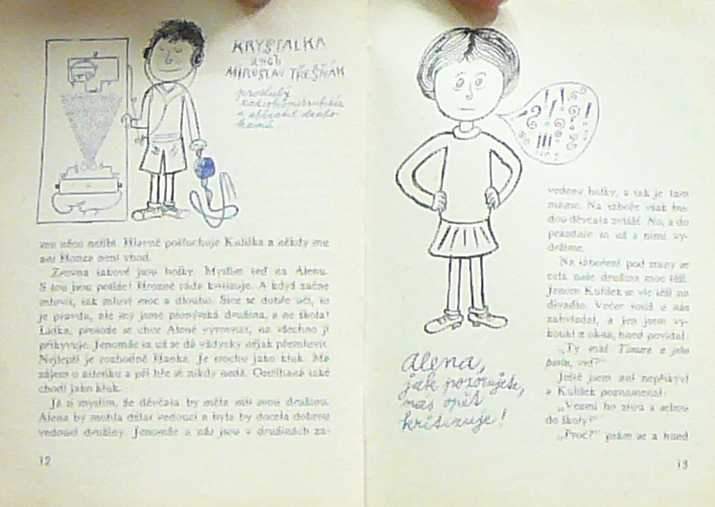 KRYSTALKA
aneb
MIROSLAV TŘEŠŇÁK
proslulý
mu něco nelíbí. Hlavně poslouchuje Kulíška a někdy me
ani Honza není vhod.
Zrovna takové jsou holky. Myslím teď na Alenu.
S tou jsou potíže! Hrozně ráda kritizuje. A když začne
mluvit, tak mluví moc a dlouho. Sice se dobře učí, to
je pravda, ale my jsme pionýrská družina, a ne škola!
Lidka, protože se chce Aleně vyrovnat, na všechno jí
přikyvuje. Jenomže ta už se dá vždycky nějak přemluvit.
Nejlepší je rozhodně Hanka. Je trochu jako kluk. Má
zájem o atletiku a při hře se nikdy nedá. Ostříhaná také
chodí jako kluk.
Já si myslím, že děvčata by měla mít svou družinu.
Alena by mohla dělat vedoucí a byla by docela dobrou
vedoucí družiny. Jenomže u nás jsou v družinách za-
12
Alena,
jak pozorujete,
nás opět
kritizuje!
vedeny holky, a tak je tam
máme. Na táboře však bu-
dou děvčata zvlášť. No, a do
prázdnin to už s nimi vy-
držíme.
Na táboření pod stany se
celá naše družina moc těší.
Jenom Kulíšek se víc těší na
divadlo. Večer totiž u nás
zahvízdal, a jen jsem vy-
koukl z okna, hned povídal:
„Ty máš Timura a jeho
partu, viď?“
Ještě jsem ani nepřikývl
a Kulíšek poznamenal:
„Vezmi ho zítra s sebou
do školy!“
„Proč?“ ptám se a hned
13